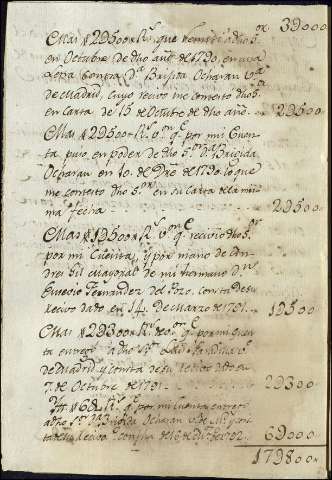 39000
Mas 29500 R.s que remití a dho S.or
en Octubre de dho año de 1790, en una
Letra contra D.a Brijida Ocharan V.a
de Madrid, cuyo recivo me contesto dho S.r
en Carta de 15 de Octubre de dho año. 29500
Mas 29500 R.s q.e por mi Cuen
ta puso en poder de dho S.r D.a Brigida
Ocharan en 10 de Dre de 1790 lo que
me contesto dho S.or en su Carta de la mis
ma fecha 29500
Mas 19500 R.s V.on q.e recivio dho S.or
por mi Cuenta, y por mano de An
dres Gil Mayoral de mi hermano D.n
Eusevio Fernandez del Pozo, consta de su
recivo dado en 14 de Marzo de 1791 19500
Mas 29300 R.s por mi quen
ta entregó a dho S.r
de Madrid y consta de su recivo dado en
7 de Octubre de 1791 29300
Yt. 69 R.s q.e por mi Cuenta entregó
a dho S.r D.a Brigida Ocharan V.a de M.d y cons
ta de su recivo con fha de 16 de de 1792 69000
179800